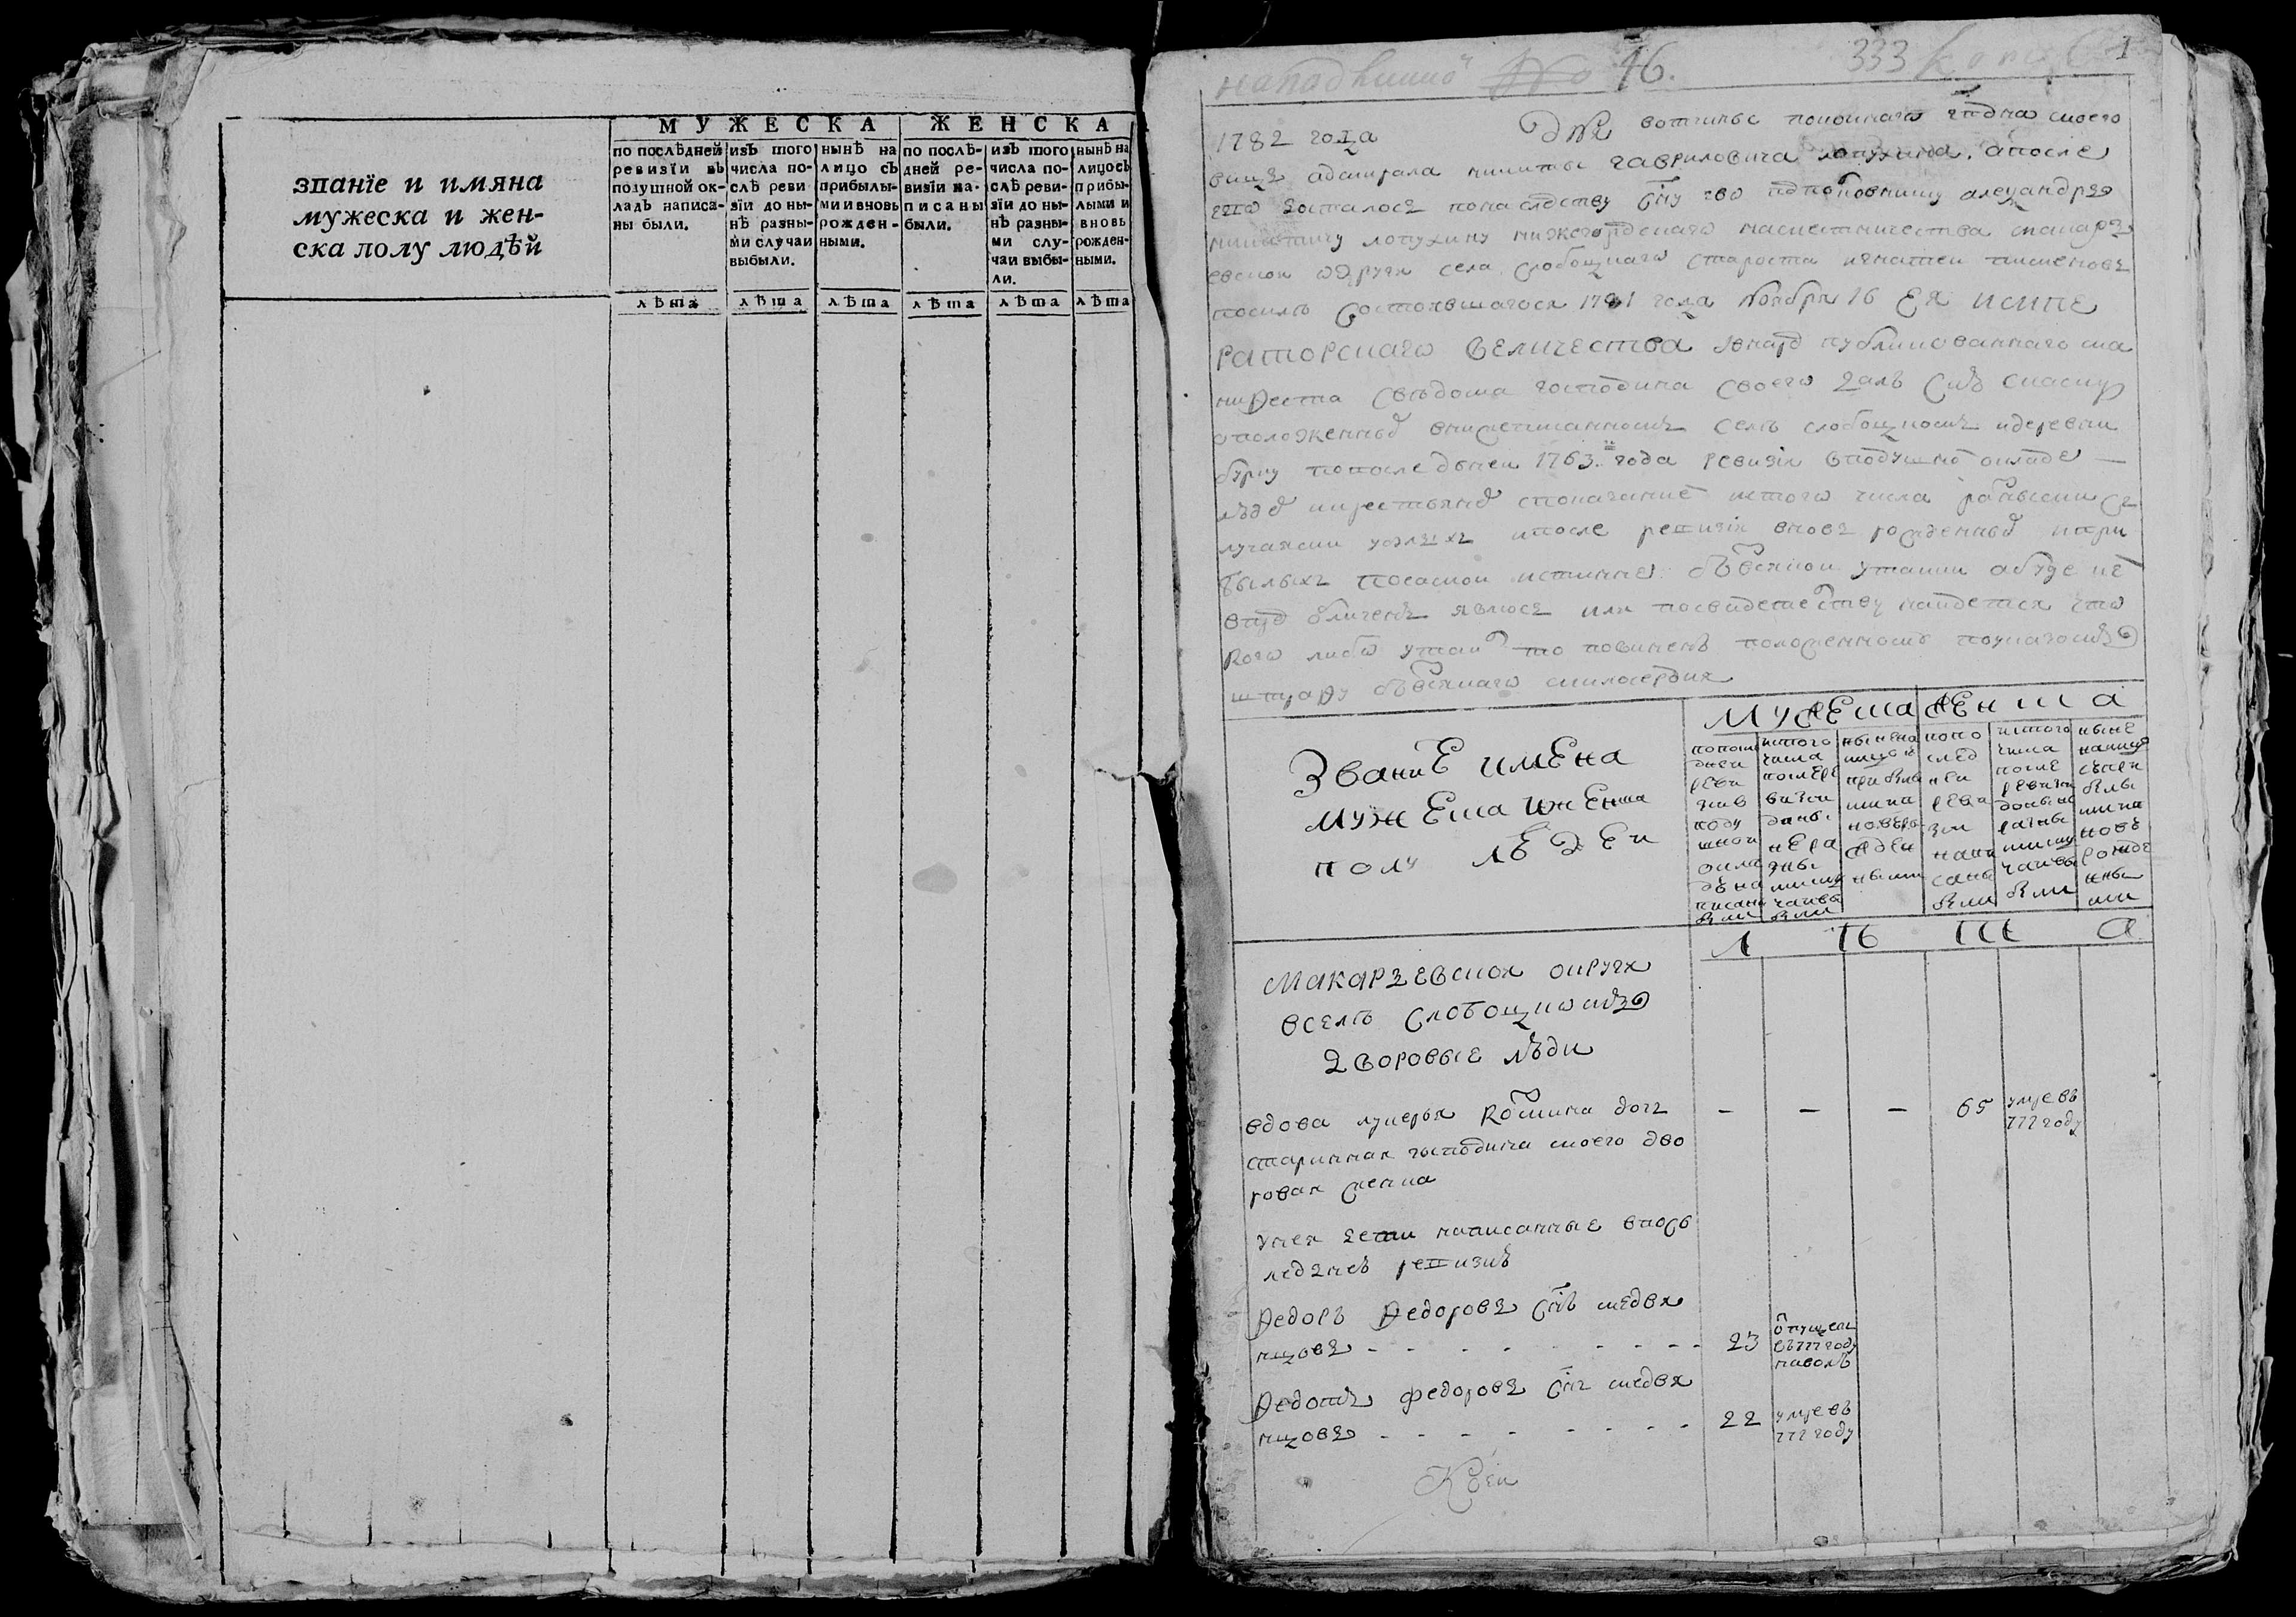 М У Ж Е С К А
Ж Е Н С К А
званїе и имяна
мужеска и жен-
ска полу людѣй
по послѣдней
ревизїи въ
подушной ок-
ладъ написа-
ны были.
изъ того
числа по-
слѣ реви
зїи до ны-
нѣ разны-
ми случаи
выбыли.
нынѣ на
лицо съ
прибылы-
ми и вновь
рожден-
ными.
по послѣ-
дней ре-
визїи на-
писаны
были.
изъ того
числа по-
слѣ реви-
зїи до ны-
нѣ разны-
ми слу-
чаи выбы-
ли.
нынѣ на
лицо съ
прибы-
лыми и
вновь
рожден-
ными.
лѣта лѣта лѣта лѣта лѣта лѣта
№ 16. 333 1
1782 года вотчины покойнаго гадна моего
адмирала никиты гавриловича лопухина, а после
ево досталося понаследству сну ево подполковнику александръ
никитичу лопухину нижегородскаго наместничества макарь
евской округи села слободскаго староста игнатеи
посилѣ состоявшагося 1781 года ноября 16 ея импе
раторскаго величества публикованнаго ма
нифеста сведома господина своего далъ сию скаску
положенныхъ селѣ слободскомъ и деревни
попоследнеи 1763 года ревизіи вподушно окладе
крестьянѣ споказание истого числа разными слу
лучаями умрших ипосле ревизіи вновь рожденныхъ ипри
былыхъ посамои истинне безо всякои утаики а буде
обличенъ явлюся или посвидетелству наидется что
кого либо утаи то повиненъ положенному поуказомъ
штрафу безо всякаго милосердия
МУЖЕСКА ЖЕНСКА
Звание имена
мужеска иженска
полу людеи
попосле
днеи
реви
зиив
поду
шнои
окла
дъ на
писани
были
истого
числа
послере
визии
даны
нера
зны
мислу
чаивы
были
нынена
лицо с
прибылы
мина
новьро
жден
ными
попо
след
неи
реви
зии
напи
саны
были
истого
числа
после
ревизии
донына
разны
мислу
чаивы
были
ныне
налицо
спри
былы
мина
новь
рожде
нны
ми
Л Ѣ Т А
Макарьевской округи
вселѣ слободскомъ
Дворовые люди
вдова лукерья дочь - - - 65 умре въ
772 году
старинная господина моего дво
ровая женка
унея дети написанные впосъ
леднеѣ ревизиѣ
Федоръ Федоровъ снъ медвя
нцовъ 23 отпущенъ
въ 777 году
наволю
Федотъ федоровъ снъ медвя
нцовъ 22 умре въ
772 году